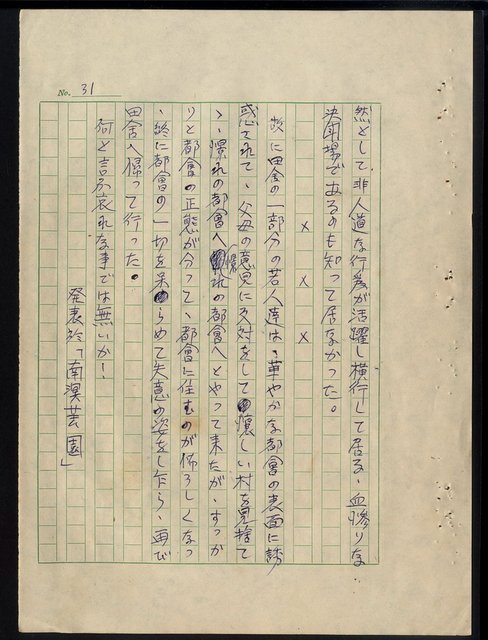 No. 31
然として、非人道な行為が活躍し横行して居る、血惨りな
決闘場であるのも知って居なかった。
× × ×
故に田舎の一部分の若人達は、華やかな都會の表面に誘
惑されて、父母の意見に反対をして懐しい村を見捨て
、憬れの都會へ憬れの都會へとやって来たが、すっか
りと都會の正態が分って、都會に住むのが怖ろしくなっ
、終に都會の一切を呆らめて失意の姿をし乍ら、再び
田舎へ帰って行った。
何と言ふ哀れな事では無いか！
発表於「南溟芸園」